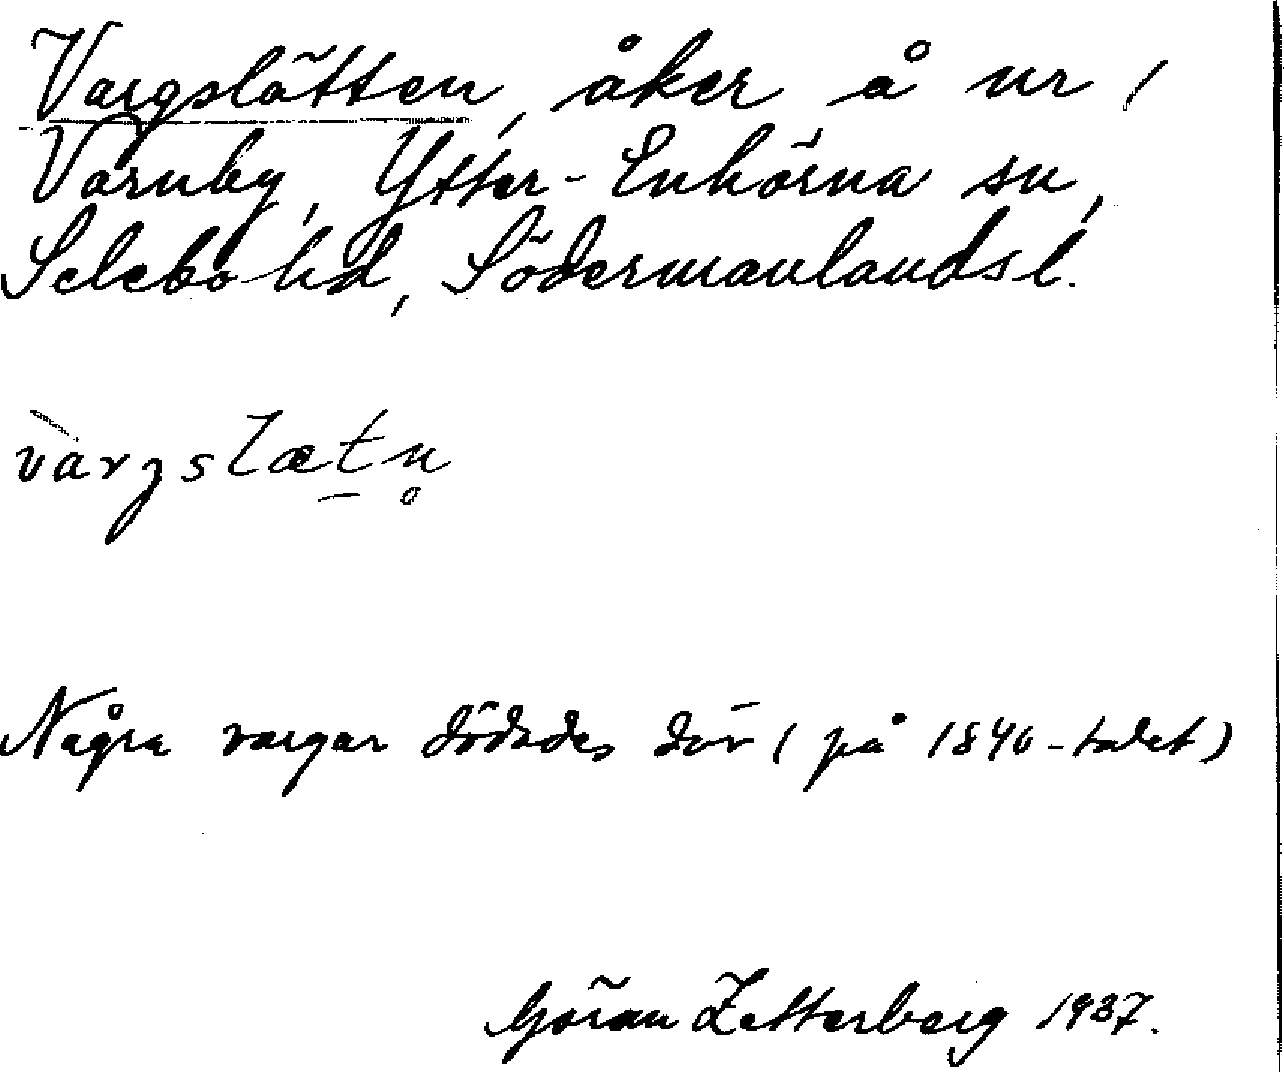 Vargslätten, åker å nr 1
Varnby, Ytter-Enhörna sn,
Selebo hd, Södermanlands l.
vàrgslætn̥
Några vargar dödades där (på 1840-talet)
Göran Zetterberg 1937.